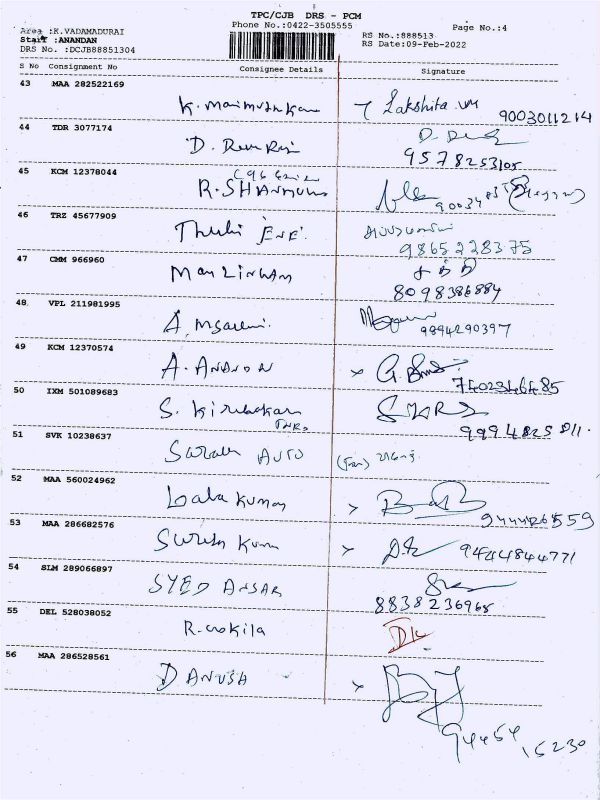 TPC/CJB DRS - PCM
Phone No.:0422-3505555
Page No.:4
Area :K.VADAMADURAI
Staff :ANANDAN
DRS No. :DCJB88851304
RS No.:888513
RS Date:09-Feb-2022
S No Consignment No Consignee Details Signature
43 MAA 282522169
Lakshita
9003011214
44 TDR 3077174
D.
9578253105
45 KCM 12378044
R. SHANMUGA
46 TRZ 45677909
Thulsi
9865228375
47 CMM 966960
MARLINGAM
8098386884
48 VPL 211981995
A.
9894290397
49 KCM 12370574
A. ANAND
7402346485
50 IXM 501089683
S. Kirubakar
51 SVK 10238637
AUTO
52 MAA 560024962
Bala Kumar
53 MAA 286682576
Suresh Kumar
9444844771
54 SLM 289066897
SYED ANSAR
8838236965
55 DEL 528038052
R. Kokila
56 MAA 286528561
DANUSA
94454 15230